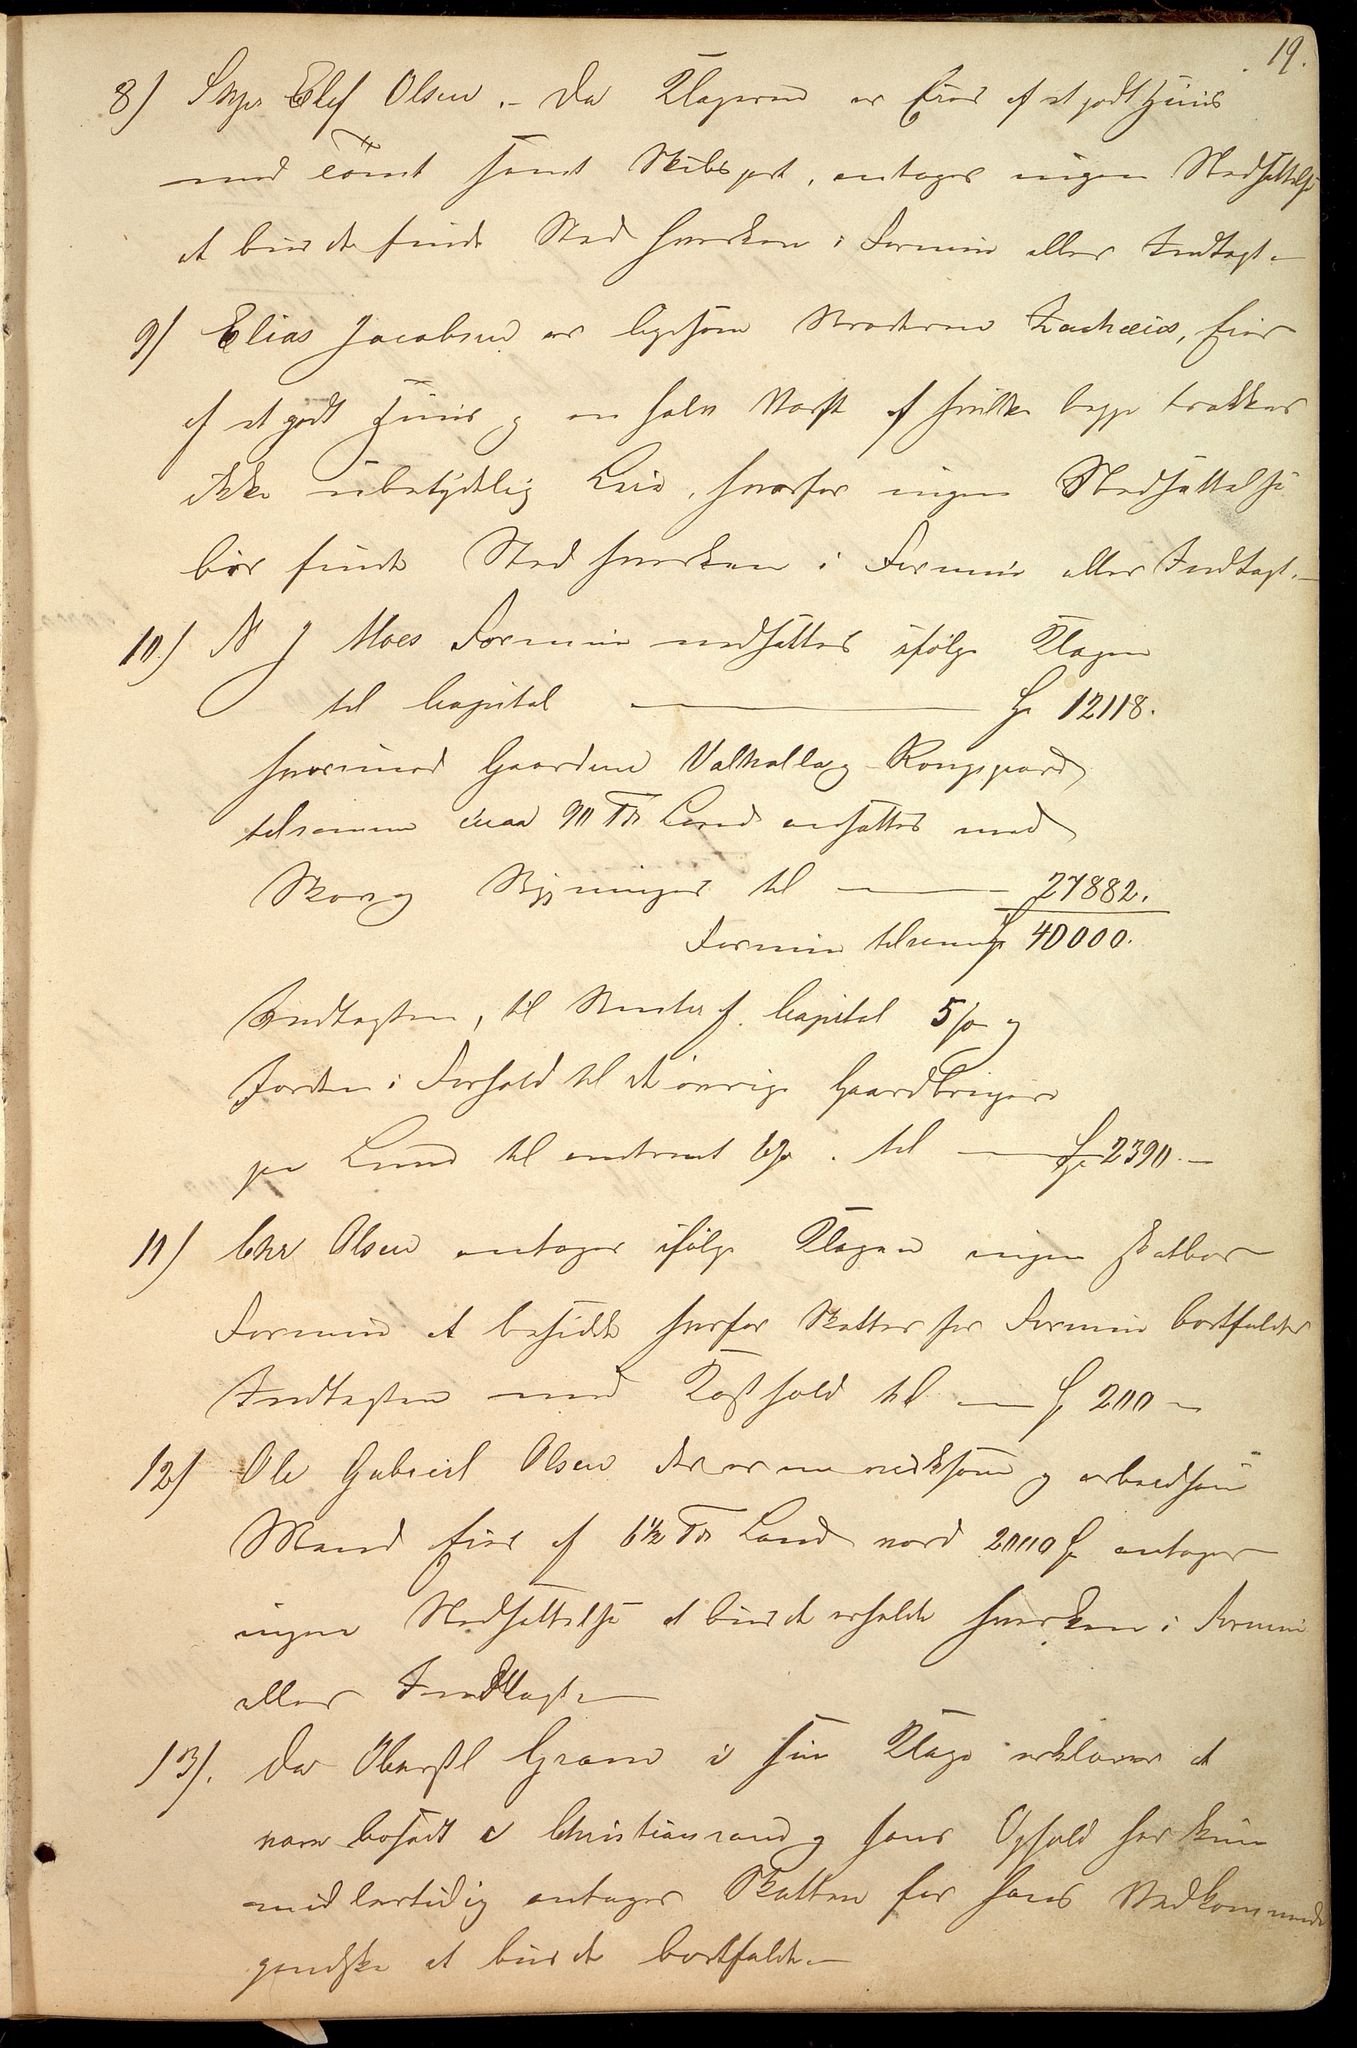 19.
8) Skpr Elef Olsen. – Da Klageren er Eier af et godt Huus
med Tomt samt Skibspart, antages ingen Nedsættelse
at burde finde Sted hverken i Formue eller Indtægt. –
9) Elias Jacobsen er ligesom Broderen Zachæus, Eier
af et godt Huus og en halv Værft af hvilke begge trækkes
ikke ubetydelig Leie, hvorfor ingen Nedsættelse
bør finde Sted hverken i Formue eller Indtægt. –
10.) N J Moes Formue nedsættes ifølge Klagen
til Capital — Kr 12118.
hvorimod Gaardene Valhalla og Kongsgaard
tilsammen circa 90 Tdr Land ansættes med
Skov og Bygninger til — 27882.
Formue tilsammen Kr 40000.
Indtægten, til Renter af Capital 5 % og
Jorden i Forhold til de øvrige Gaardbrugere
pa Lund til omtrent 6 % . til — Kr 2390. –
11) Chr Olsen antages ifølge Klagen ingen skatbar
Formue at besidde hvorfor Skatten for Formue bortfalder
Indtægten med Kosthold til — Kr 200 –
12) Ole Gabriel Olsen der er en virksom og arbeidsom
Mand Eier af 6½ Tdr Land værd 2000 Kr antages
ingen Nedsættelse at burde erholde hverken i Formue
eller Indtægt –
13). Da Oberstl Gram i sin Klage erklærer at
være bosadt i Christiansand og hans Ophold her kun
midlertidig antages Skatten for hans Vedkommende
ganske at burde bortfalde. –